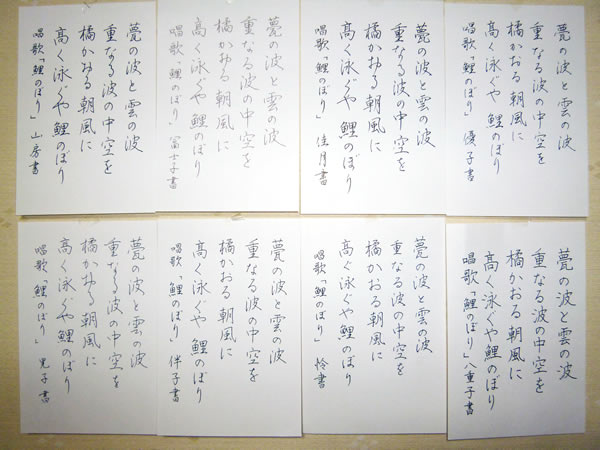 甍の波と雲の波
重なる波の中空を
橘かおる朝風に
高く泳ぐや鯉のぼり
唱歌「鯉のぼり」優子書
甍の波と雲の波
重なる波の中空を
橘かおる朝風に
高く泳ぐや鯉のぼり
唱歌「鯉のぼり」佳月書
甍の波と雲の波
重なる波の中空を
橘かおる朝風に
高く泳ぐや鯉のぼり
唱歌「鯉のぼり」冨士子書
甍の波と雲の波
重なる波の中空を
橘かおる朝風に
高く泳ぐや鯉のぼり
唱歌「鯉のぼり」山房書
甍の波と雲の波
重なる波の中空を
橘かおる朝風に
高く泳ぐや鯉のぼり
唱歌「鯉のぼり」八重子書
甍の波と雲の波
重なる波の中空を
橘かおる朝風に
高く泳ぐや鯉のぼり
唱歌「鯉のぼり」怜書
甍の波と雲の波
重なる波の中空を
橘かおる朝風に
高く泳ぐや鯉のぼり
唱歌「鯉のぼり」伴子書
甍の波と雲の波
重なる波の中空を
橘かおる朝風に
高く泳ぐや鯉のぼり
唱歌「鯉のぼり」